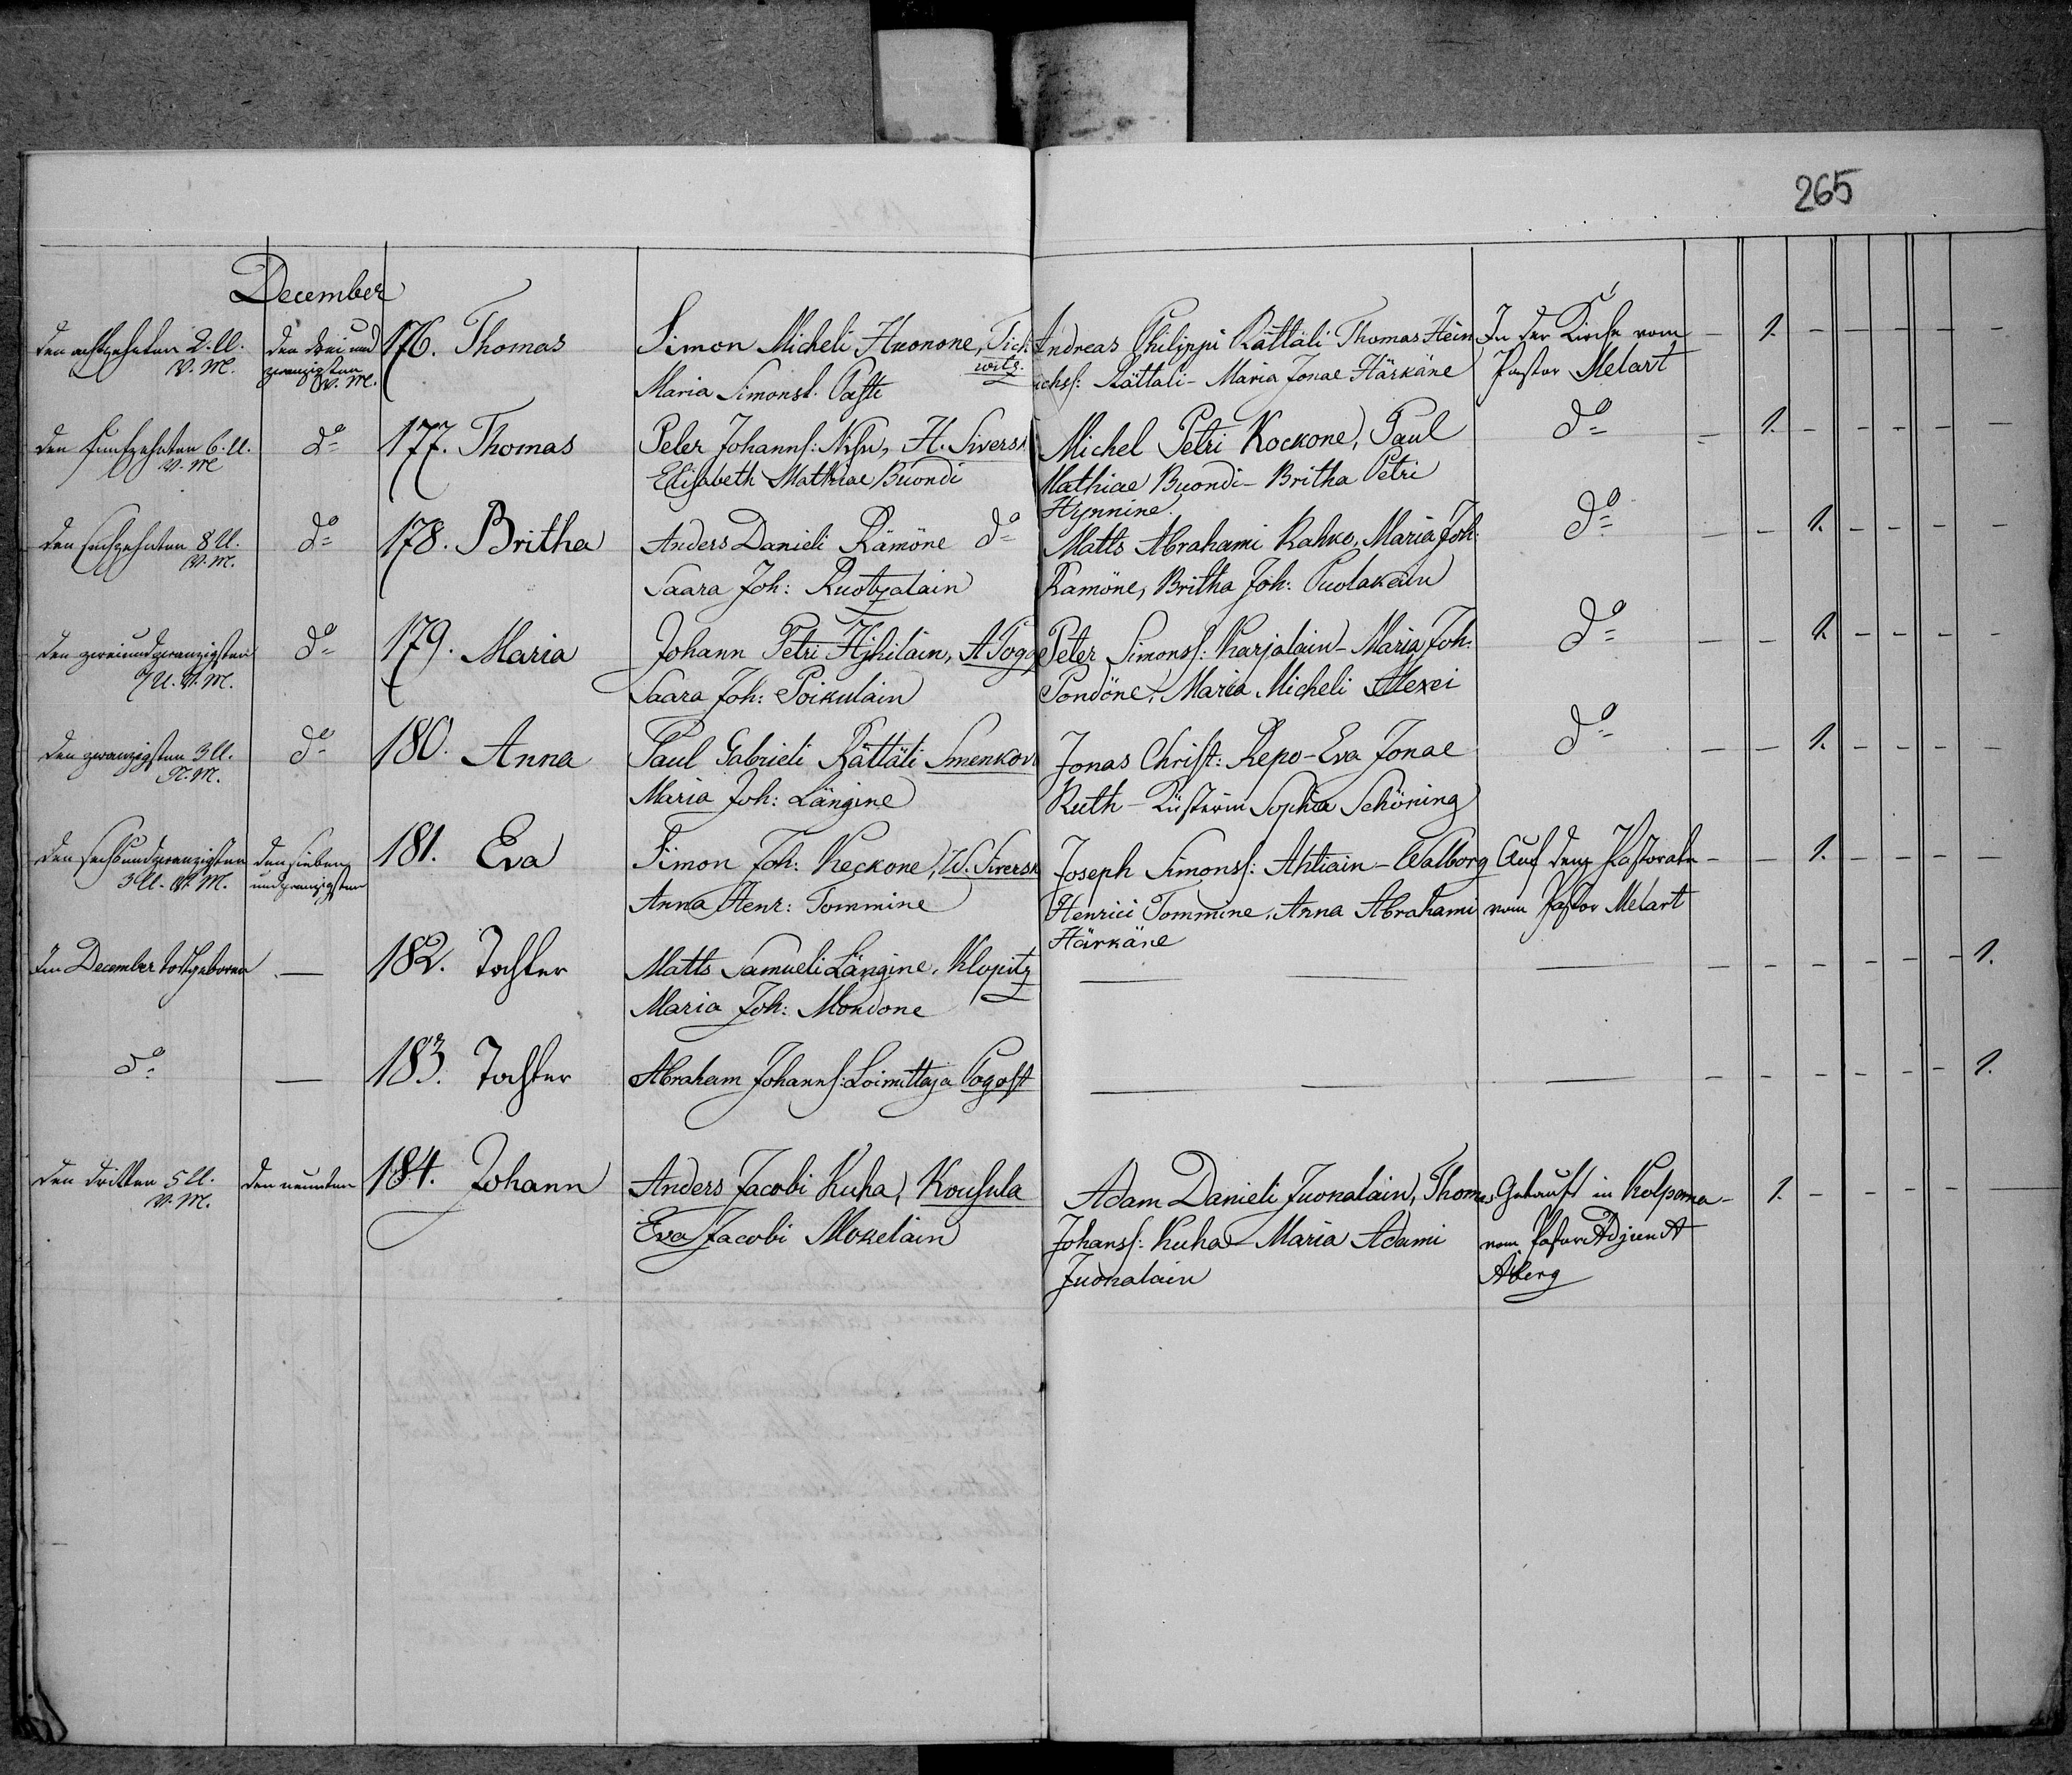 265
December
den achtzehnten 2. U. V. M. den drei und zwanzigsten V. M. 176. Thomas Simon Micheli Huonone, Tich Andreas Philippi Rättäli Thomas Hein In der Kirche vom – 1. – – – – –
witz.
Maria Simonsd. Paste richs: Rättäli – Maria Jonae Härkäne Pastor Melart
den fünfzehnten 6. U. V. M. do 177. Thomas Peter Johanns: H. Siversk Michel Petri Kockone, Paul do – 1. – – – – –
Elisabeth Mathiae Buondi Mathiae Buondi – Britha Petri
Hynnine.
den sechzehnten 8 U. V. M. do 178. Britha Anders Danieli Rämöne do Matts Abrahami Kahko, Maria Joh: do – – 1. – – – –
Saara Joh: Ruotzalain Rämöne, Britha Joh: Puolakain
den zweiundzwanzigsten 7 U. V. M. do 179. Maria Johann Petri Hjhiläin, A Pogo Peter Simonss: Karjalain – Maria Joh: do – – 1. – – – –
Saara Joh: Poikulain Pondöne, Maria Micheli Alexei
den zwanzigsten 3 U. N. M. do 180. Anna Paul Gabrieli Rättäli Smenkov Jonas Christ: Repo – Eva Jonae do – – 1. – – – –
Maria Joh: Längine Ruth – Küsterin Sophia Schöning
den sechsundzwanzigsten 3 U. V. M. den sieben undzwanzigsten 181. Eva Simon Joh: Keckone, W. Siversk Joseph Simonss: Ahtiain – Walborg Auf dem Pastorate – – 1. – – – –
Anna Henr: Tommine Henrici Tommine, Anna Abrahami vom Pastor Melart
Härkäne
Im December todtgeboren – 182. Tochter Matts Samueli Längine, Klopitz — — — – – – – – – 1.
Maria Joh: Mondone
do – 183. Tochter Abraham Johanns: Loimittaja Pogost — — — – – – – – – 1.
den dritten 5 U. V. M. den neunten 184. Johann Anders Jacobi Kuha, Koufula Adam Danieli Juonalain, Thomas Getauft in Kolpana – 1. – – – –
Eva Jacobi Mokelain Johanss: Kuha – Maria Adami vom Pastor Adjunct
Juonalain Åberg